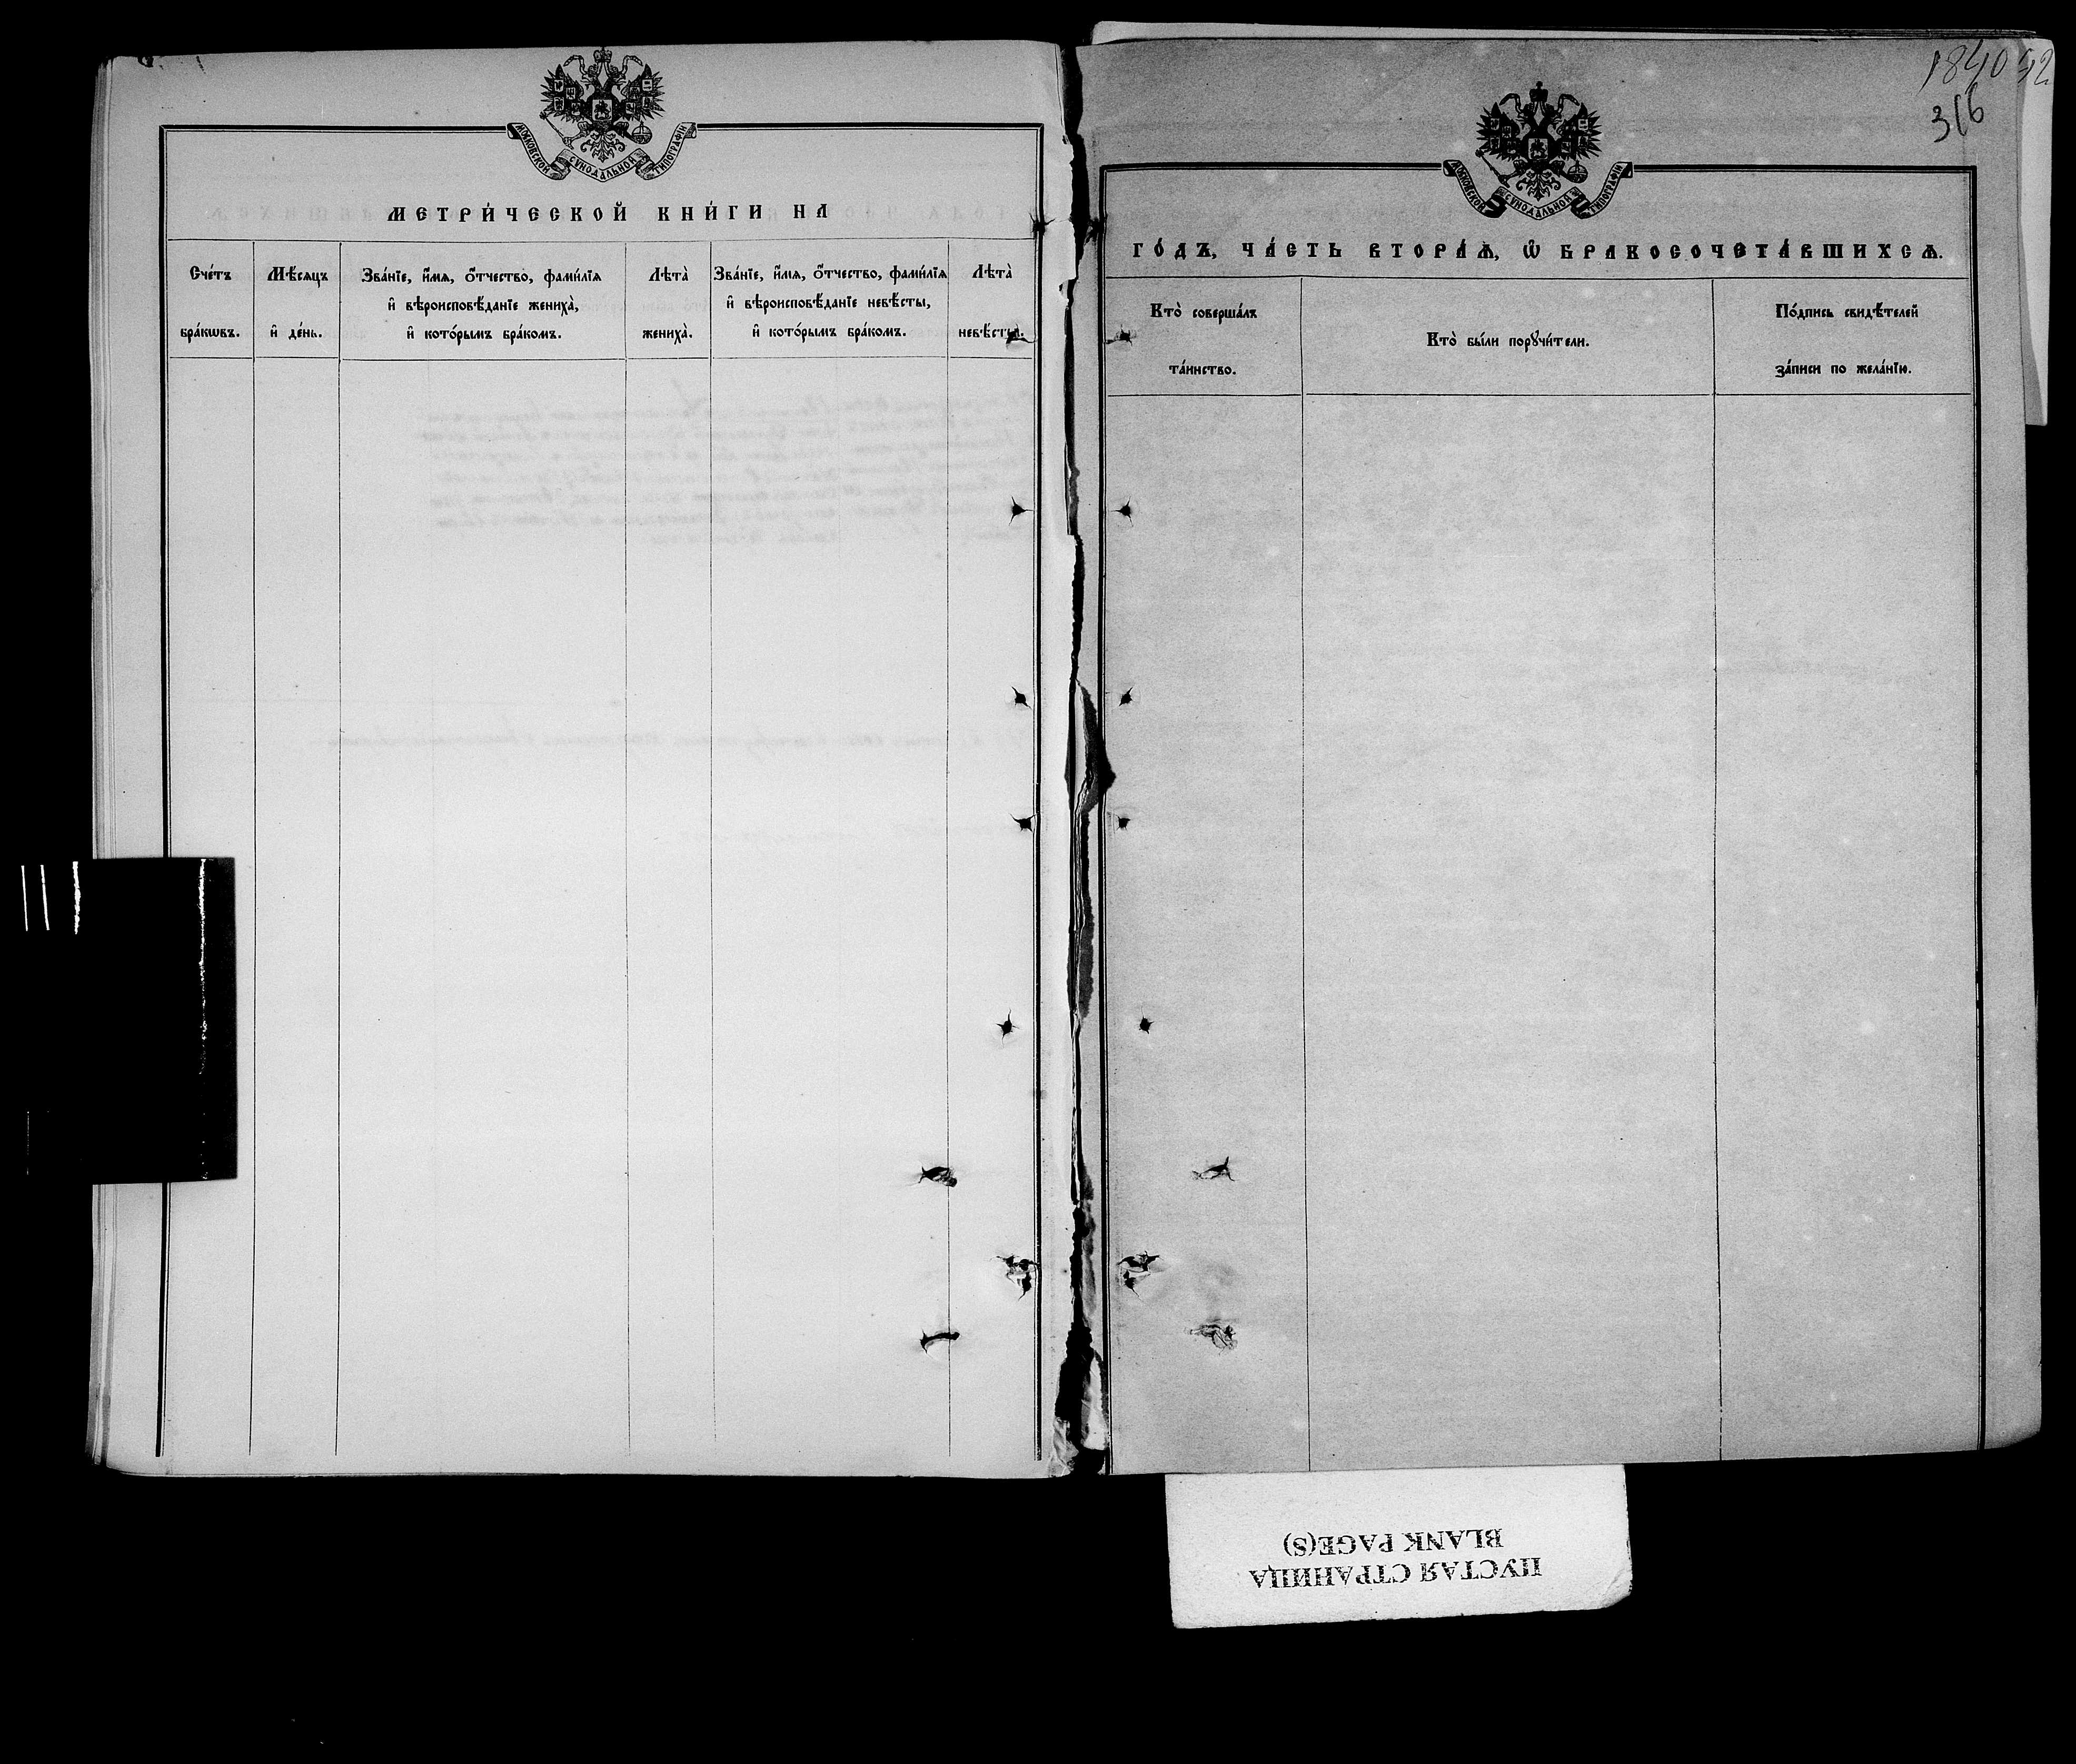 МОСКОВСКОЙ СѴНОДАЛЬНОЙ ТИПОГРАФІИ
МЕТРИ́ЧЕСКОЙ КНИ́ГИ НА
Сче́тъ
бра́кѡвъ.
Мѣ́сяцъ
и҆ де́нь.
Зва́нїе, и҆́мѧ, ѻ҆́тчество, фами́лїѧ
и҆ вѣроисповѣ́данїе жениха̀,
и҆ кото́рымъ бра́комъ.
Лѣ́та̀
жениха̀.
Зва́нїе, и҆́мѧ, ѻ҆́тчество, фами́лїѧ
и҆ вѣроисповѣ́данїе невѣ́сты,
и҆ кото́рымъ бра́комъ.
Лѣ́та̀
невѣ́сты.
1840 42
316
МОСКОВСКОЙ СѴНОДАЛЬНОЙ ТИПОГРАФІИ
ГО́ДЪ, ЧА́СТЬ ВТОРА́Ѧ, Ѡ҆ БРАКОСОЧЕТА́ВШИХСѦ.
Кто̀ соверша́лъ
та́инство.
Кто̀ бы́ли порꙋчи́тели.
По́дпись свидѣ́телей
за́писи по жела́нїю.
ПУСТАЯ СТРАНИЦА
BLANK PAGE(S)